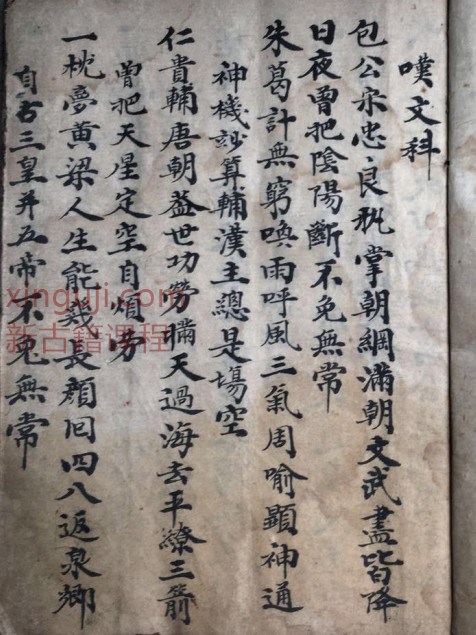 嘆文科
包公宋忠良執掌朝綱滿朝文武盡皆降
日夜曾把陰陽斷不免無常
朱葛計無窮喚雨呼風三氣周喻顯神通
神機妙算輔漢主總是塲空
仁貴輔唐朝蓋世功勞瞞天過海去平繚三箭
曾把天星定空自煩勞
一枕夢黄梁人生能幾長顔回四八返泉鄉
自古三皇并五帝不免無常
xinguji.com
新古籍课程